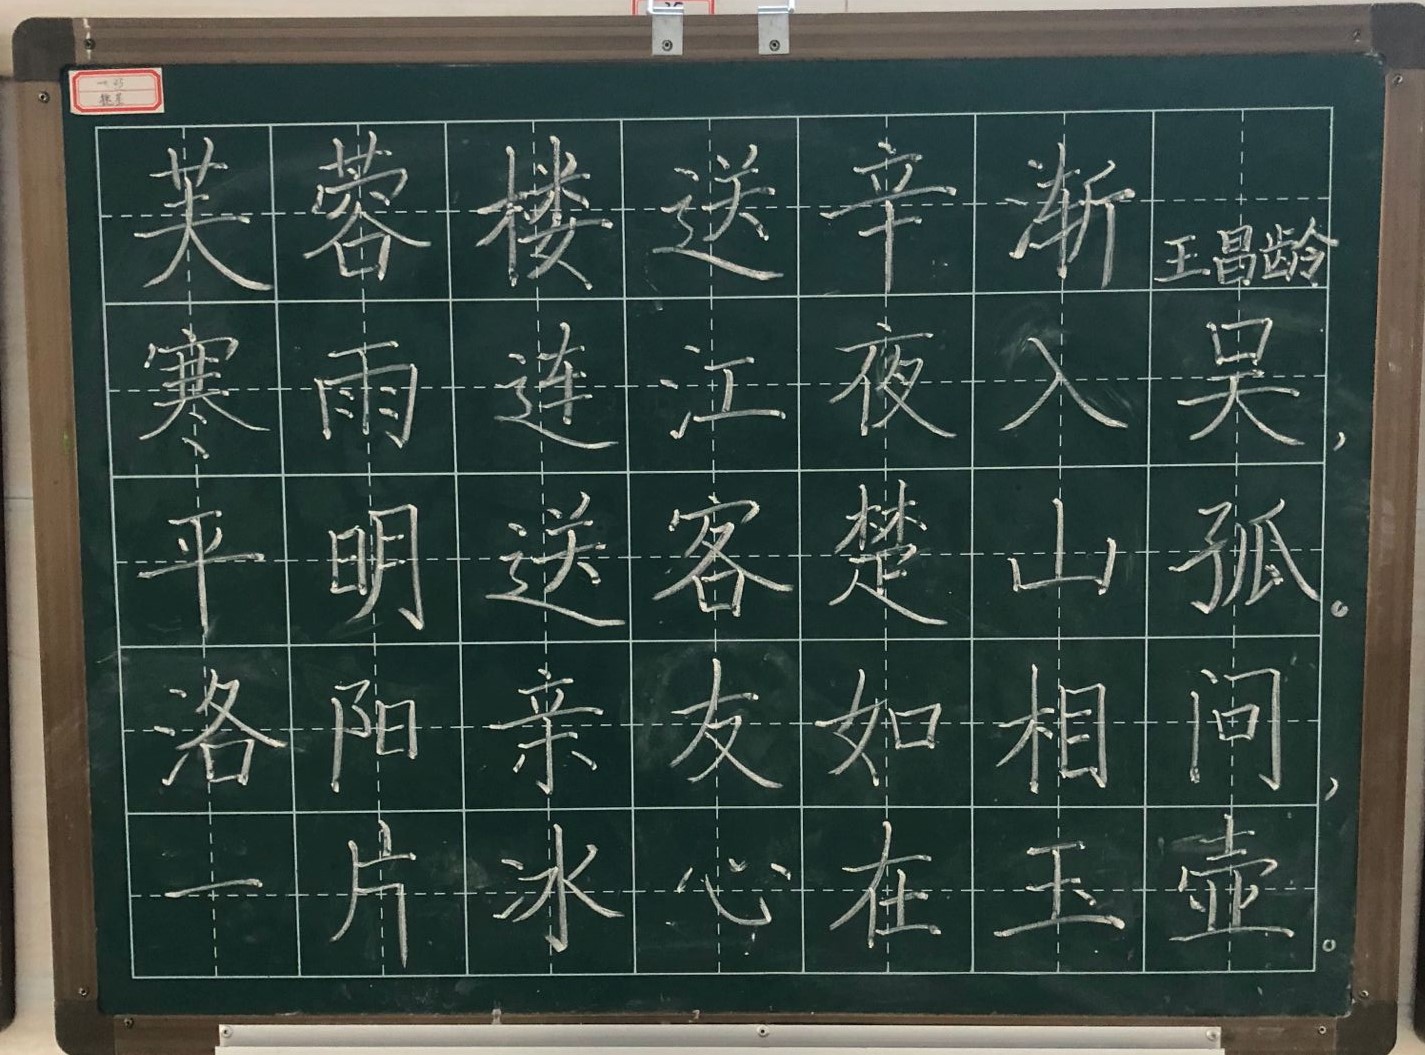 芙蓉楼送辛渐 王昌龄
寒雨连江夜入吴,
平明送客楚山孤。
洛阳亲友如相问,
一片冰心在玉壶。